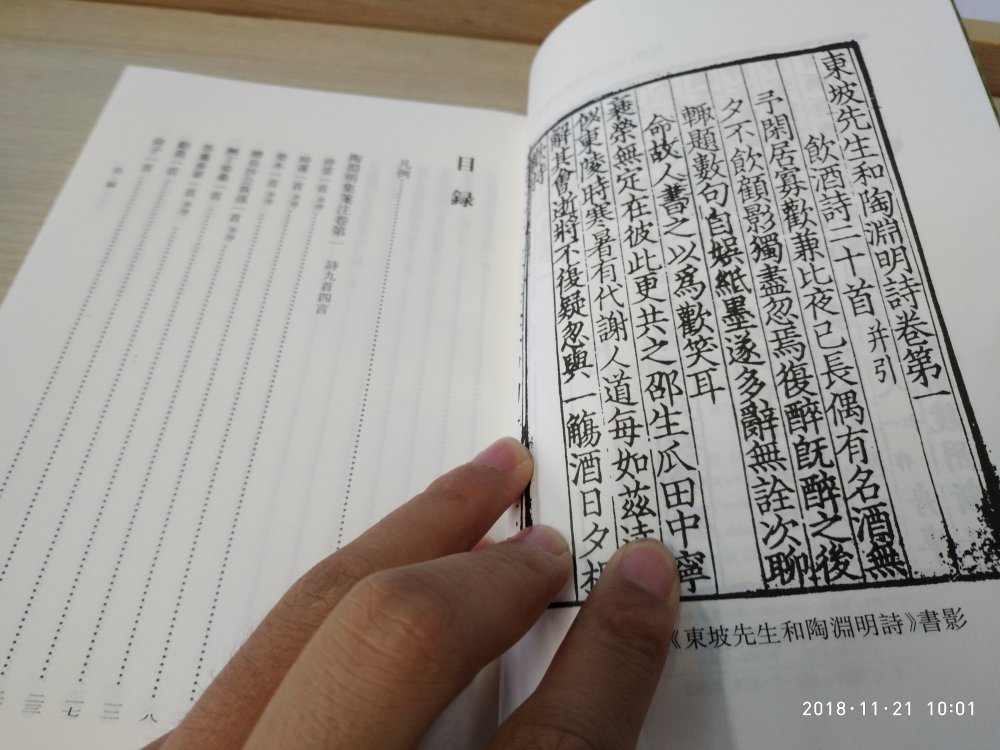 東坡先生和陶淵明詩卷第一
飲酒詩二十首 并引
予閑居寡歡兼比夜已長偶有名酒無
夕不飲顧影獨盡忽焉復醉旣醉之後
輒題數句自娯紙墨遂多辭無詮次聊
命故人書之以爲歡笑耳
衰榮無定在彼此更共之邵生瓜田中寧
似東陵時寒暑有代謝人道每如茲
解其會逝將不復疑忽與一觴酒日夕
《東坡先生和陶淵明詩》書影
目錄
凡例
陶淵明集箋注卷第一 詩九首四言
停雲一首 并序
時運一首 并序 八
榮木一首 并序 一三
一七
2018·11·21 10:01